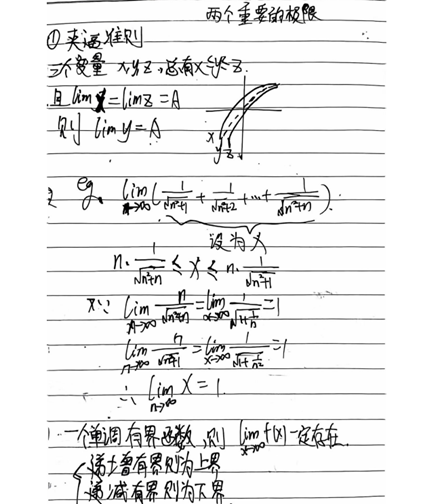 两个重要的极限
①夹逼准则
三个变量 x,y,z,总有x≤y≤z.
且 lim x = lim z = A
则 lim y = A
x y z
eg. lim n→∞ (1/√(n²+1) + 1/√(n²+2) + … + 1/√(n²+n)).
设为 X
n·1/√(n²+n) ≤ X ≤ n·1/√(n²+1)
又∵ lim n→∞ n/√(n²+n) = lim x→∞ 1/√(1+1/n) = 1
lim n→∞ n/√(n²+1) = lim x→∞ 1/√(1+1/n²) = 1
∴ lim n→∞ X = 1.
一个单调有界函数,则 lim x→∞ f(x) 一定存在.
{递增有界则为上界
递减有界则为下界